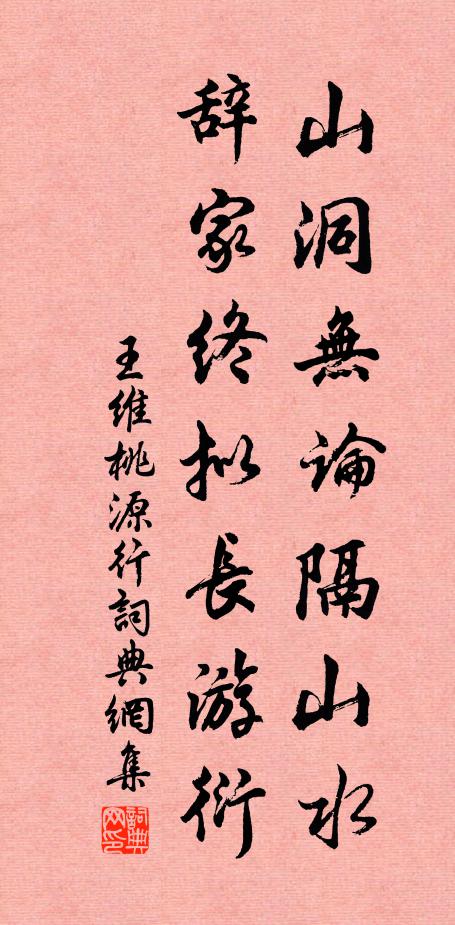 山洞無論隔山水
辞家終拟長游衍
王維桃源行詞典網集
詞典网印